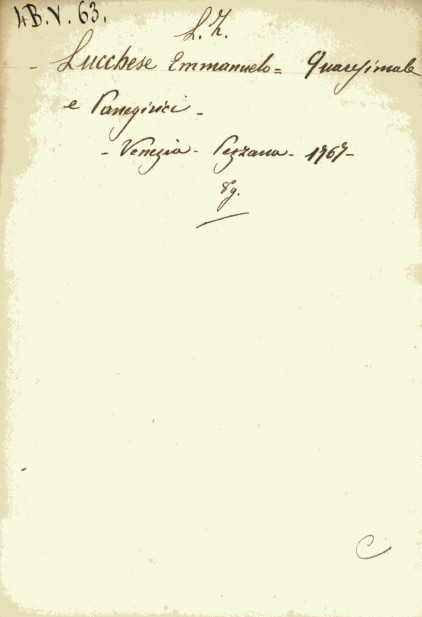 4B.V. 63.
L.Z.
- Lucchese Emmanuelo = Quaresimale
e Panegirici -
- Venezia - Pezzana - 1767 -
8º g.
C